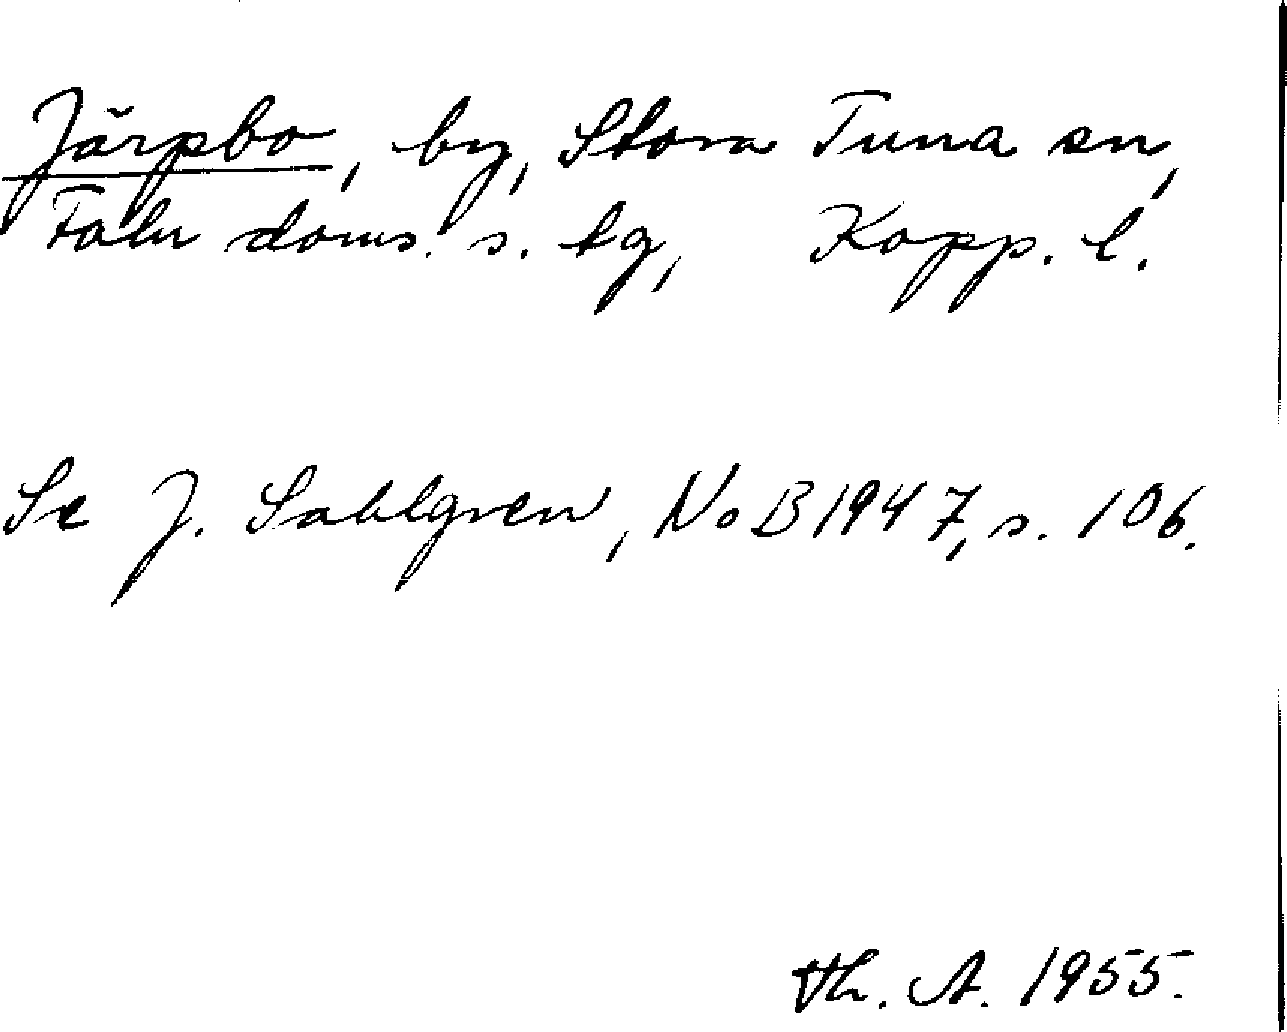 Järpbo, by, Stora Tuna sn,
Falu doms. s. tg, Kopp. l.
Se J. Sahlgren, NoB 1947, s. 106.
Th. A. 1955.